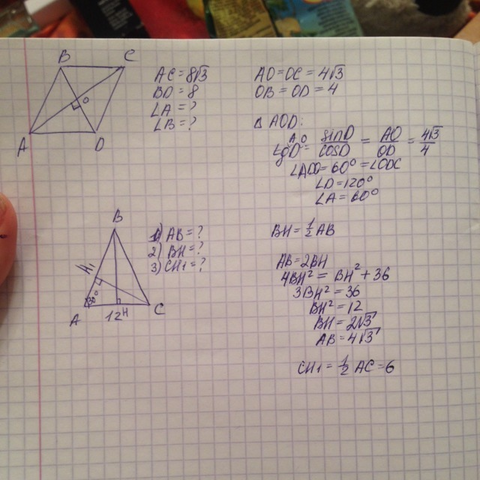 B C
O
A D
AC = 8√3
BD = 8
∠A = ?
∠B = ?
AO = OC = 4√3
OB = OD = 4
△ AOD:
sinD / cosD = AO / OD = 4√3 / 4
∠ADO = 60° = ∠ODC
∠D = 120°
∠A = 60°
B
H₁
A 12 H C
1) AB = ?
2) BH = ?
3) CH₁ = ?
BH = 1/2 AB
AB = 2BH
4BH² = BH² + 36
3BH² = 36
BH² = 12
BH = 2√3
AB = 4√3
CH₁ = 1/2 AC = 6